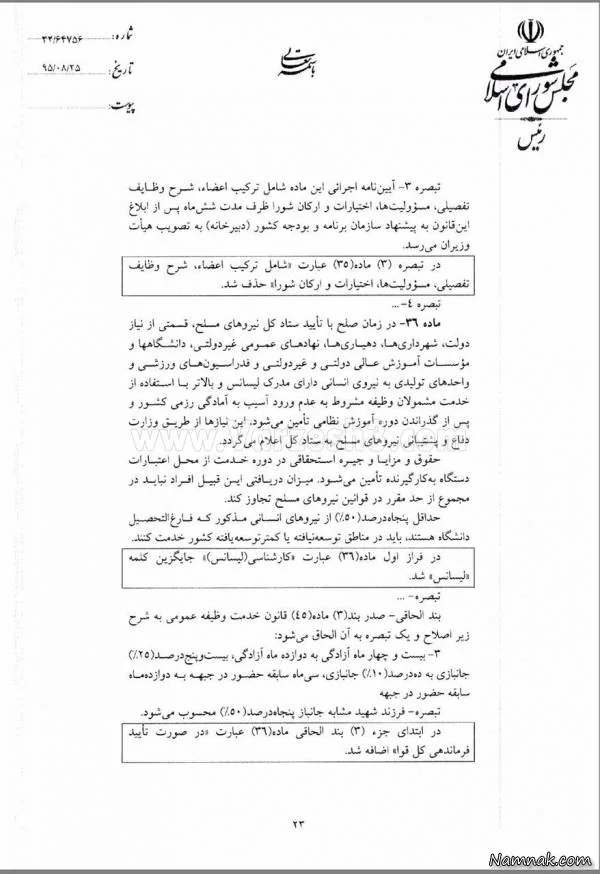 جمهوری اسلامی ایران
مجلس شورای اسلامی
رئیس
باسمه تعالی
شماره: ۳۲/۶۴۷۵۶
تاریخ: ۹۵/۰۸/۲۵
پیوست:
تبصره ۳- آیین‌نامه اجرائی این ماده شامل ترکیب اعضاء، شرح وظایف
تفصیلی، مسؤولیت‌ها، اختیارات و ارکان شورا ظرف مدت شش‌ماه پس از ابلاغ
این‌قانون به پیشنهاد سازمان برنامه و بودجه کشور (دبیرخانه) به تصویب هیأت
وزیران می‌رسد.
در تبصره (۳) ماده(۳۵) عبارت «شامل ترکیب اعضاء، شرح وظایف
تفصیلی، مسؤولیت‌ها، اختیارات و ارکان شورا» حذف شد.
تبصره ٤-...
ماده ۳۶- در زمان صلح با تأیید ستاد کل نیروهای مسلح، قسمتی از نیاز
دولت، شهرداری‌ها، دهیاری‌ها، نهادهای عمومی غیردولتی، دانشگاهها و
مؤسسات آموزش عالی دولتی و غیردولتی و فدراسیون‌های ورزشی و
واحدهای تولیدی به نیروی انسانی دارای مدرک لیسانس و بالاتر با استفاده از
خدمت مشمولان وظیفه مشروط به عدم ورود آسیب به آمادگی رزمی کشور و
پس از گذراندن دوره آموزش نظامی تأمین می‌شود. این نیازها از طریق وزارت
دفاع و پشتیبانی نیروهای مسلح به ستاد کل اعلام می‌گردد.
حقوق و مزایا و جیره استحقاقی در دوره خدمت از محل اعتبارات
دستگاه به‌کارگیرنده تأمین می‌شود. میزان دریافتی این قبیل افراد نباید در
مجموع از حد مقرر در قوانین نیروهای مسلح تجاوز کند.
حداقل پنجاه‌درصد(۵۰٪) از نیروهای انسانی مذکور که فارغ‌التحصیل
دانشگاه هستند، باید در مناطق توسعه‌نیافته یا کمترتوسعه‌یافته کشور خدمت کنند.
در فراز اول ماده(۳۶) عبارت «کارشناسی(لیسانس)» جایگزین کلمه
«لیسانس» شد.
تبصره-...
بند الحاقی- صدر بند(۳) ماده(٤۵) قانون خدمت وظیفه عمومی به شرح
زیر اصلاح و یک تبصره به آن الحاق می‌شود:
۳- بیست و چهار ماه آزادگی به دوازده ماه آزادگی، بیست‌وپنج‌درصد(۲۵٪)
جانبازی به ده‌درصد(۱۰٪) جانبازی، سی‌ماه سابقه حضور در جبهه به دوازده‌ماه
سابقه حضور در جبهه
تبصره- فرزند شهید مشابه جانباز پنجاه‌درصد(۵۰٪) محسوب می‌شود.
در ابتدای جزء (۳) بند الحاقی ماده(۳۶) عبارت «در صورت تأیید
فرماندهی کل قوا» اضافه شد.
۲۳
Namnak.com